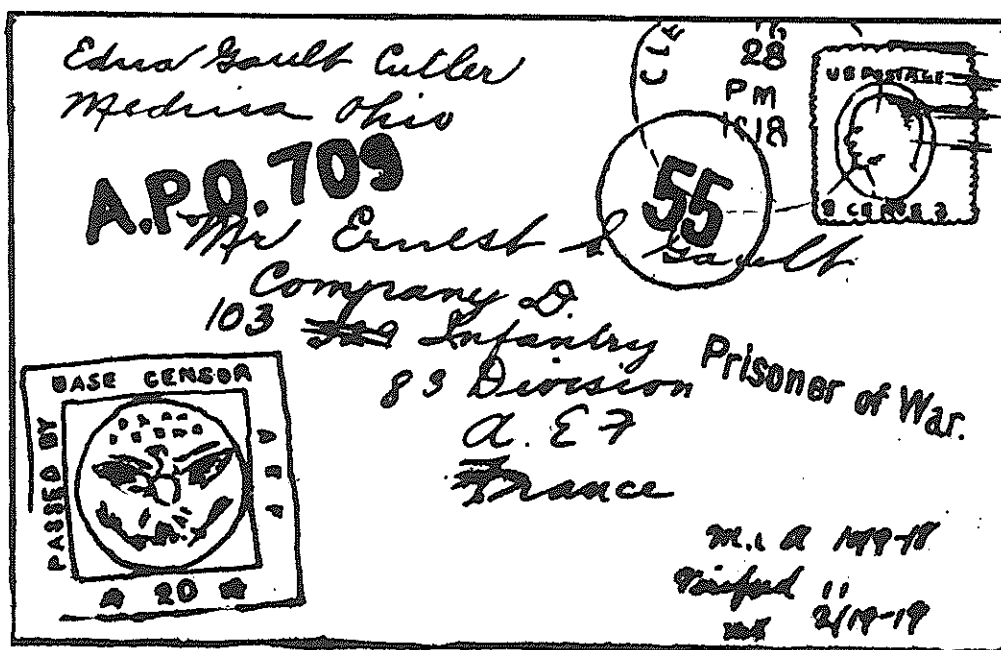 Edna Gault Cutler
Medina Ohio
CLE
28
PM
1918
US POSTAGE
A.P.O. 709
55
Mr Ernest S Gault
Company D.
103 329 Infantry
83 Division
A. E F
France
Prisoner of War.
PASSED BY
BASE CENSOR
20
M. i A
Verified
2/19-19